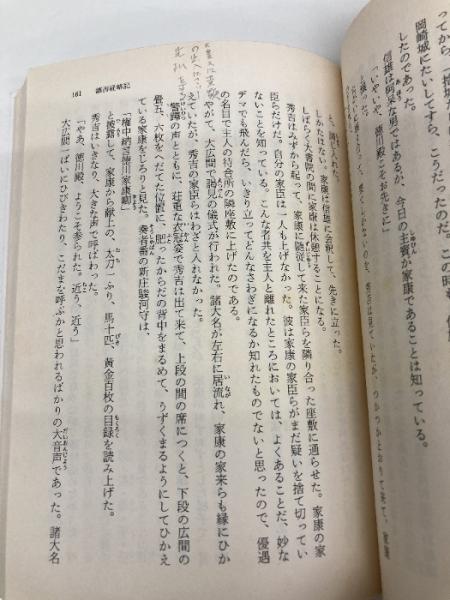 岡崎城にたいしてすら、こうだったのだ。この時
したのであった。
信雄は阿呆な男ではあるが、今日の主賓が家康であることは知っている。
「いやいや、徳川殿こそお先きに」
と、譲られた。
しかたはない。家康は信雄に会釈して、先きに立った。
しばらく大書院の間に家康は休憩することになる。
秀吉はみずから起って、家康に随従して来た家臣らを隣り合った座敷に通らせた。家康の家
臣らだけだ。自分の家臣は一人も上げなかった。彼は家康の家臣らがまだ疑いを捨て切ってい
ないことを知っている。こんな者共を主人と離れたところにおいては、よくあることだ、妙な
デマでも飛んだら、いきり立ってどんなさわぎになるか知れたものでないと思ったので、優遇
の名目で主人の待合所の隣座敷に上げたのである。
やがて、大広間で謁見の儀式が行われた。諸大名が左右に居流れ、家康の家来らも縁にひか
えていたが、秀吉の家臣らはわざと入れなかった。
警蹕の声とともに、荘重な衣冠姿で秀吉は出て来て、上段の間の席につくと、下段の広間の
畳五、六枚をへだてた位置に、肥ったからだの背中をまるめて、うずくまるようにしてひかえ
ている家康をじろりと見た。奏者番の新庄駿河守は、
「権中納言徳川家康卿」
と披露して、家康から献上の、太刀一ふり、馬十匹、黄金百枚の目録を読み上げた。
秀吉はいきなり、大きな声で呼ばわった。
「やあ、徳川殿、ようこそ参られた。近う、近う」
大広間一ぱいにひびきわたり、こだまを呼ぶかと思われるばかりの大音声であった。諸大名
161